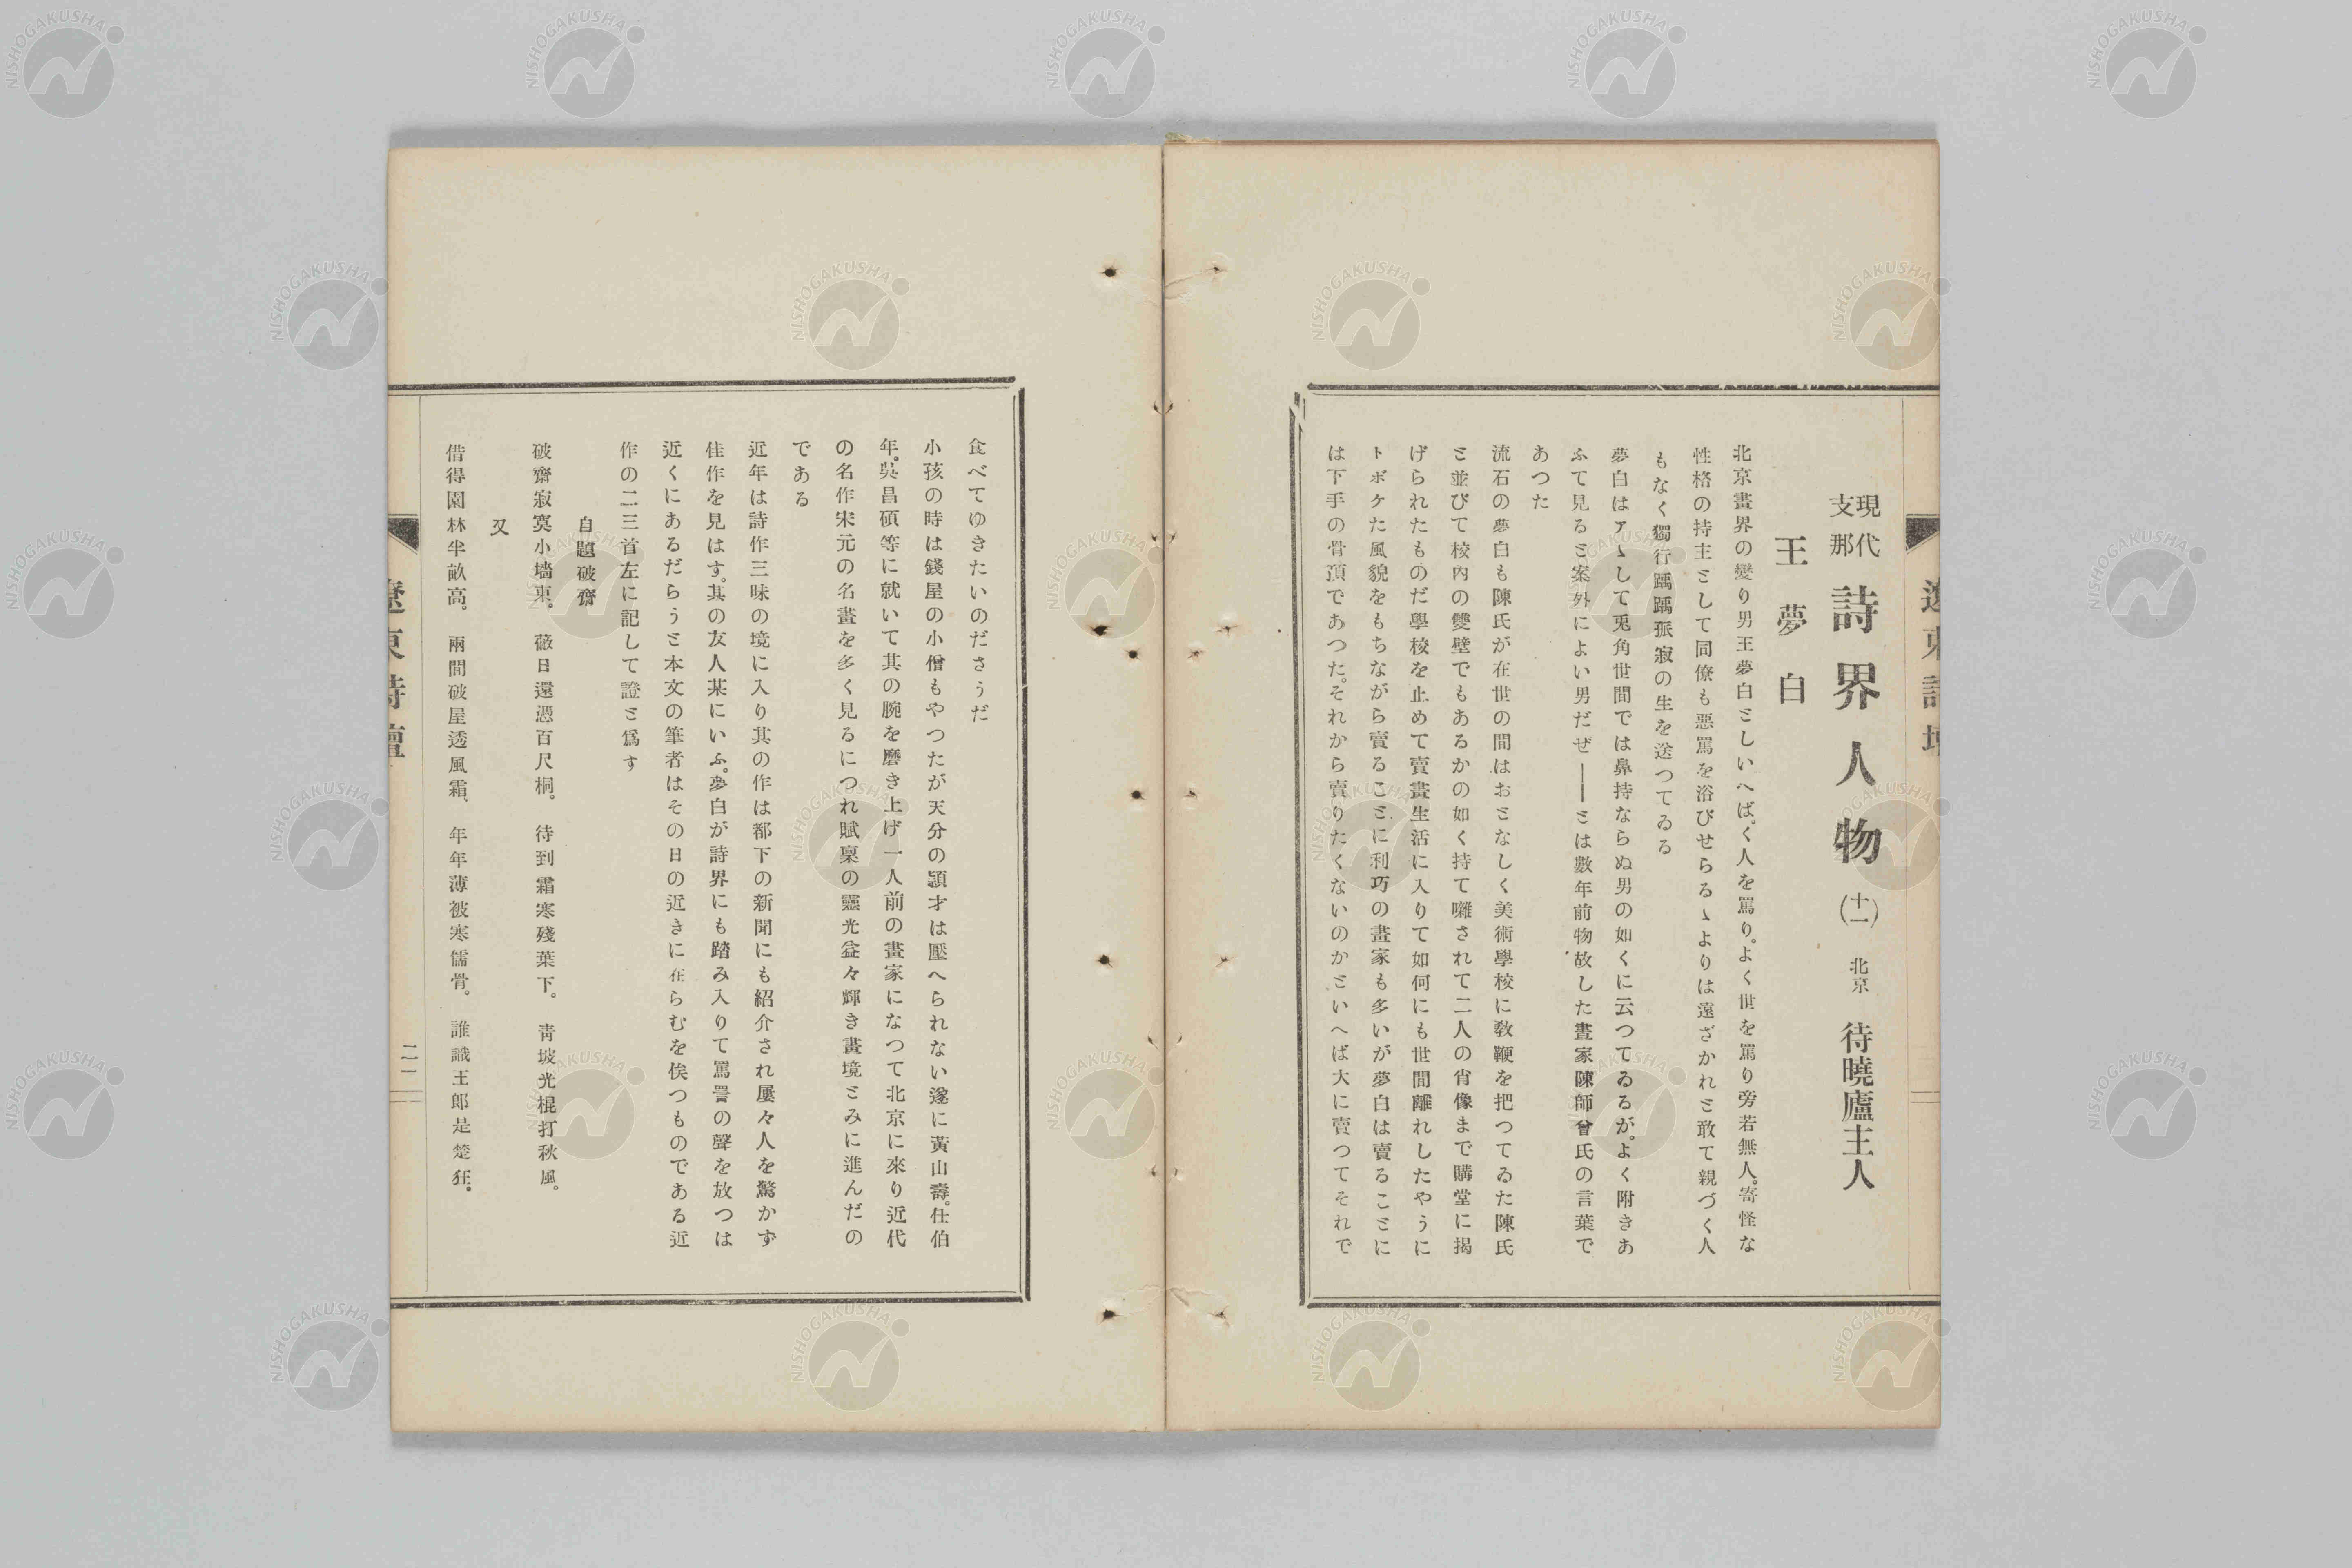 現代
支那
詩界人物
(十一)
北京
待曉廬主人
王夢白
北京畫界の變り男王夢白としいへば、く人を罵り。よく世を罵り旁若無人。寄怪な
性格の持主として同僚も惡罵を浴びせらるゝよりは遠ざかれと敢て親づく人
もなく獨行踽踽孤寂の生を送つてゐる
夢白はアヽして兎角世間では鼻持ならぬ男の如くに云つてゐるが。よく附きあ
ふて見ると案外によい男だぜ——とは數年前物故した畫家陳師曾氏の言葉で
あつた
流石の夢白も陳氏が在世の間はおとなしく美術學校に敎鞭を把つてゐた陳氏
と並びて校内の雙壁でもあるかの如く持て囃されて二人の肖像まで購堂に揭
げられたものだ學校を止めて賣畫生活に入りて如何にも世間離れしたやうに
トボケた風貌をもちながら賣ることに利巧の畫家も多いが夢白は賣ることに
は下手の骨頂であつた。それから賣りたくないのかといへば大に賣つてそれで
食べてゆきたいのださうだ
小孩の時は錢屋の小僧もやつたが天分の顕才は壓へられない遂に黃山壽。任伯
年。吳昌碩等に就いて其の腕を磨き上げ一人前の畫家になつて北京に來り近代
の名作宋元の名畫を多く見るにつれ賦稟の靈光益々輝き畫境とみに進んだの
である
近年は詩作三昧の境に入り其の作は都下の新聞にも紹介され屢々人を驚かず
佳作を見はす。其の友人某にいふ。夢白が詩界にも踏み入りて罵詈の聲を放つは
近くにあるだらうと本文の筆者はその日の近きに在らむを俟つものである近
作の二三首左に記して證と爲す
自題破齋
破齋寂寞小墻東。 蔽日還憑百尺桐。 待到霜寒殘葉下。 靑坡光棍打秋風。
又
借得園林半畝高。 兩間破屋透風霜、 年年薄被寒儒骨。 誰識王郎是楚狂。
遼東詩壇
二一